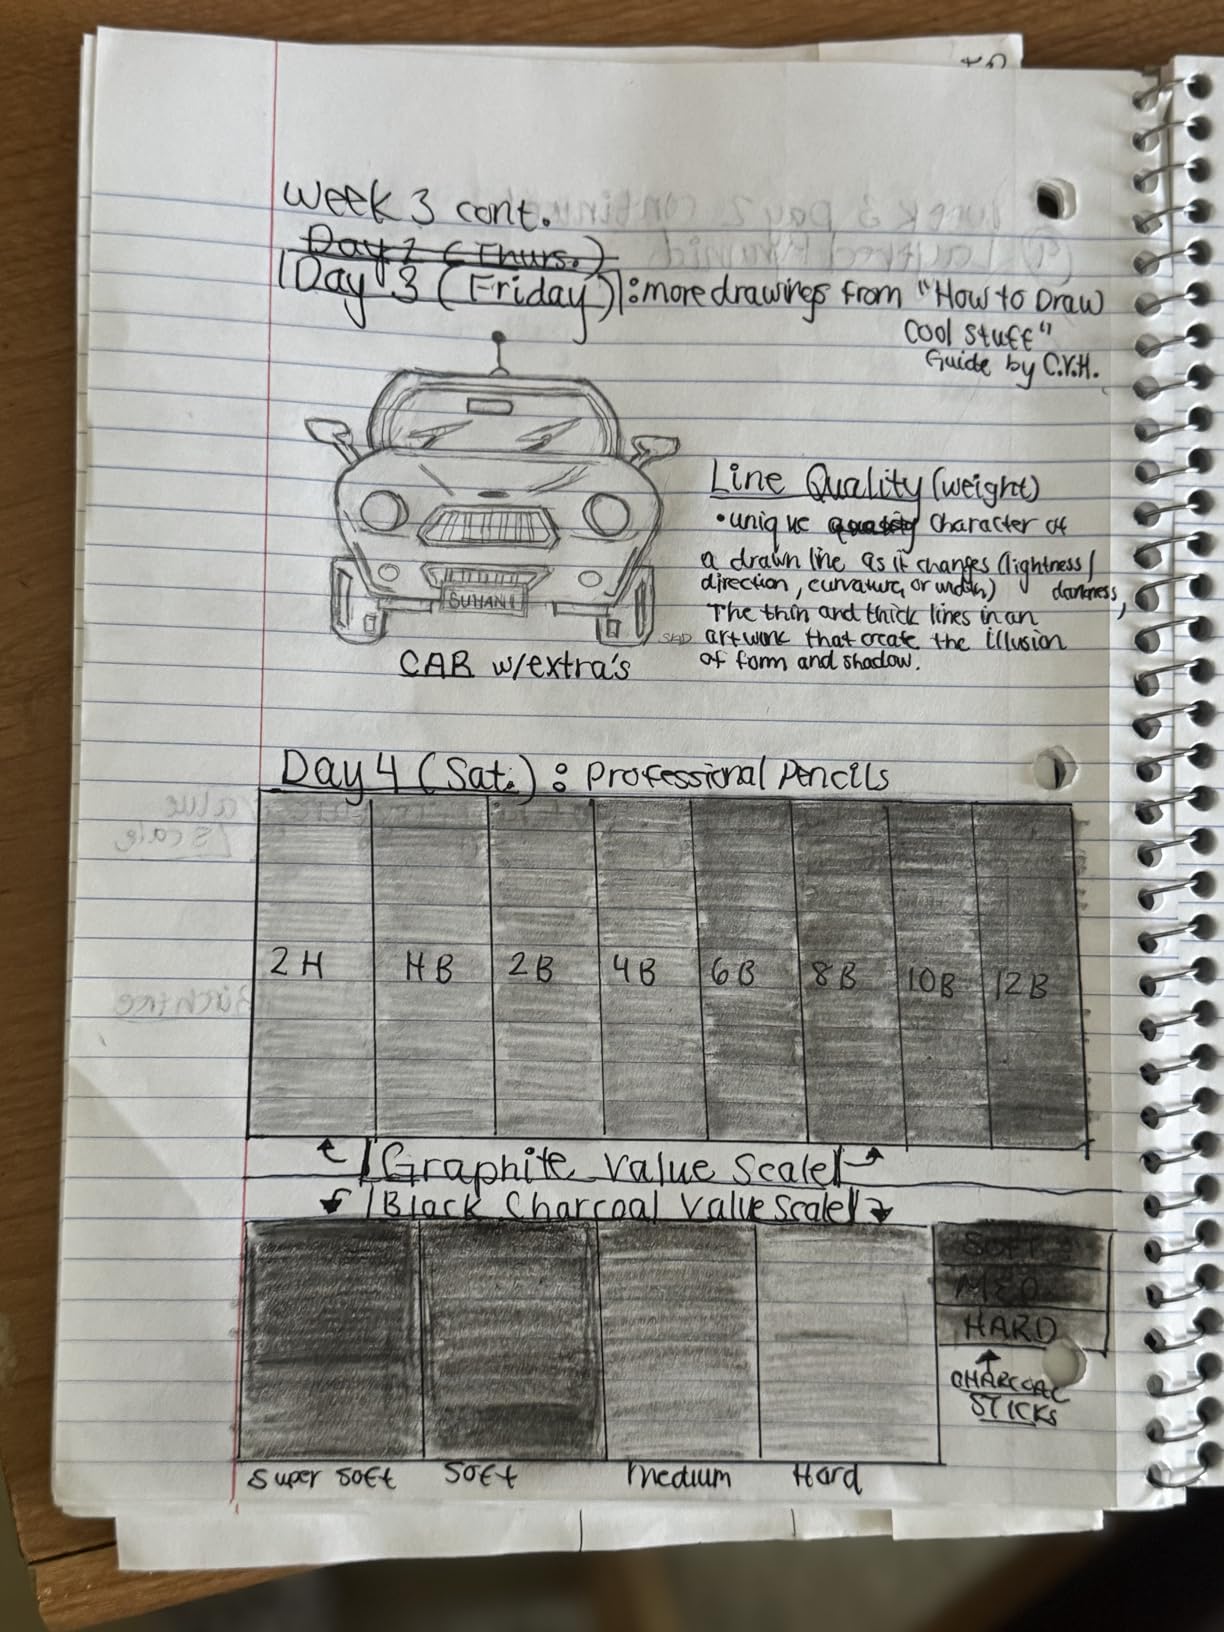 Week 3 cont.
Day 2 (Thurs.)
Day 3 (Friday) : more drawings from "How to Draw
Cool Stuff"
Guide by C.V.H.
SUHANI
CAR w/extra's
Line Quality (weight)
• unique quality character of
a drawn line as it changes (lightness/
direction, curvature, or width) darkness,
The thin and thick lines in an
artwork that create the illusion
of form and shadow.
Day 4 (Sat.) : Professional Pencils
2H HB 2B 4B 6B 8B 10B 12B
Graphite Value Scale
Black Charcoal Value Scale
SOFT
MED
HARD
CHARCOAL
STICKS
Super Soft Soft Medium Hard